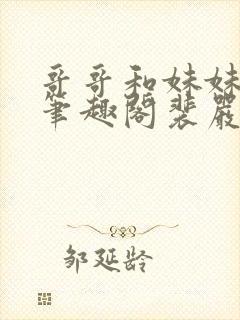 哥哥和妹妹
笔趣阁裴严
邹延龄